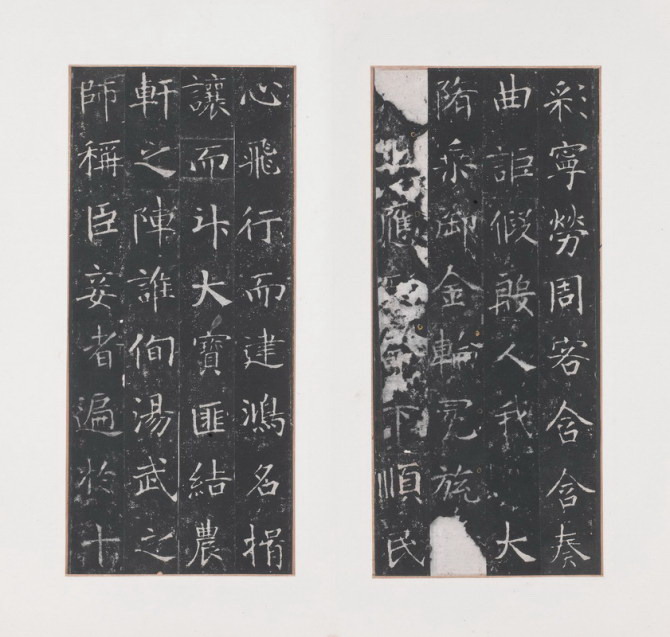 彩寧勞周客含含奏
曲詎假殷人我 大
隋乘御金輪冕旒
上應下順民
心飛行而建鴻名揖
讓而升大寶匪結農
軒之陣誰侚湯武之
師稱臣妾者遍於十